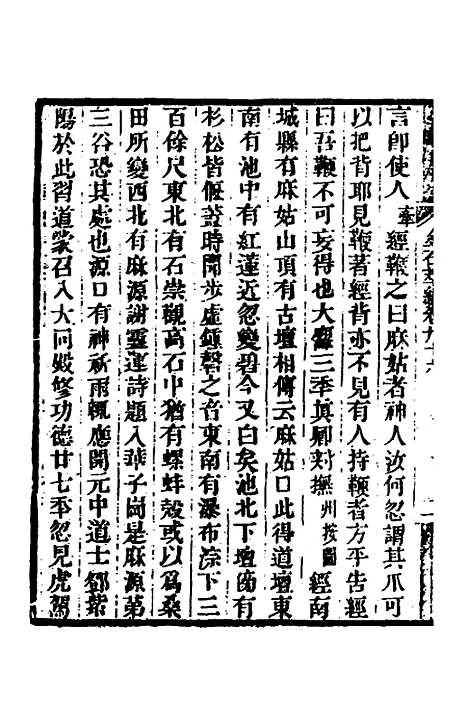 言即使人牽經鞭之曰麻姑者神人汝何忽謂其爪可
以把背耶見鞭著經背亦不見有人持鞭者方平告經
曰吾鞭不可妄得也大曆三年真卿刺撫州按圖經南
城縣有麻姑山頂有古壇相傳云麻姑於此得道壇東
南有池中有紅蓮近忽變碧今又白矣池北下壇傍有
杉松皆偃蓋時聞步虛鍾磬之音東南有瀑布淙下三
百餘尺東北有石崇觀高石中猶有螺蚌殻或以為桑
田所變西北有麻源謝靈運詩題入華子岡是麻源第
三谷恐其處也源口有神祈雨輒應開元中道士鄧紫
陽於此習道蒙召入大同殿修功德廿七年忽見虎駕